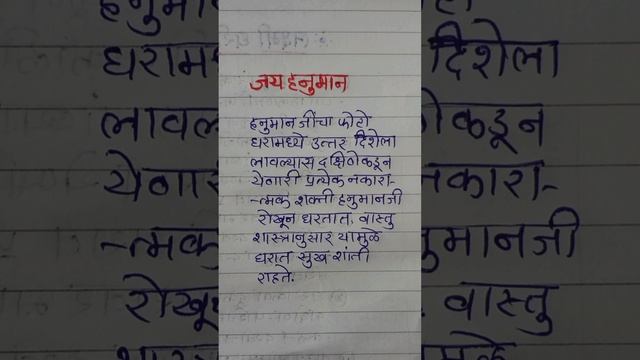 जय हनुमान
हनुमानजींचा फोटो
घरामध्ये उत्तर दिशेला
लावल्यास दक्षिणेकडून
येणारी प्रत्येक नकारा-
-त्मक शक्ती हनुमानजी
रोखून धरतात. वास्तु
शास्त्रानुसार यामुळे
घरात सुख शांती
राहते.